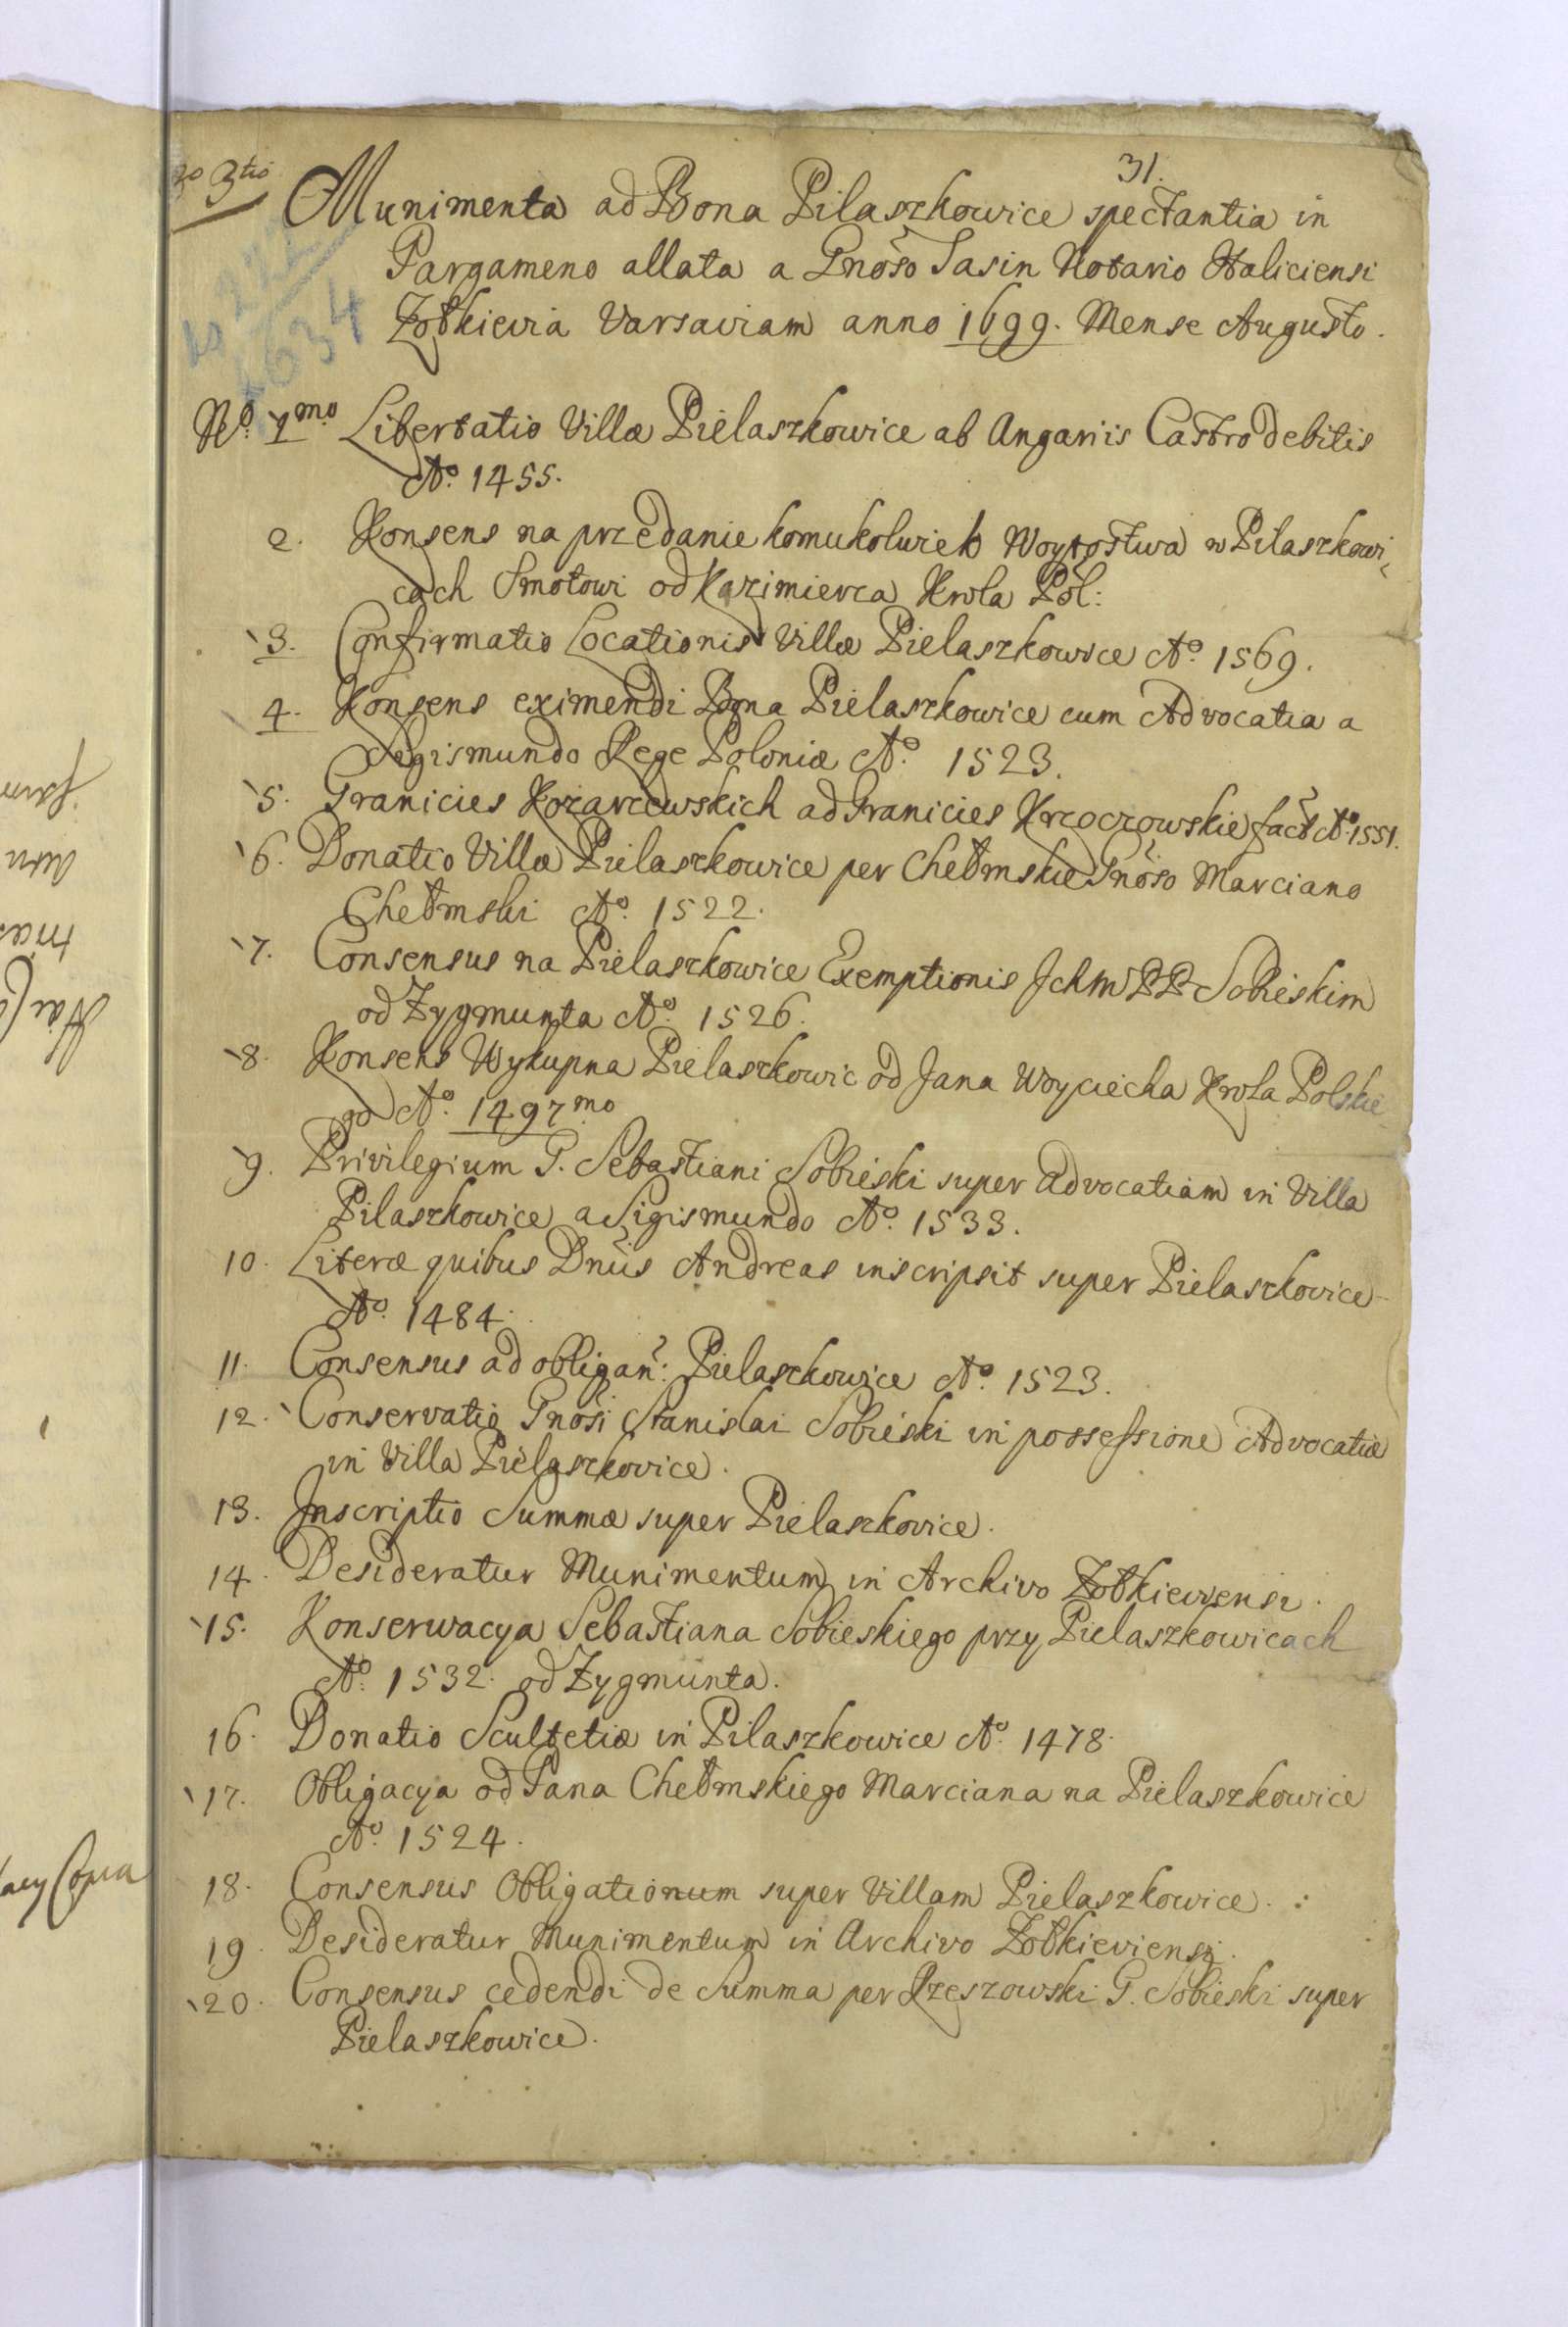 31.
3tio Munimenta ad Bona Pilaszkowice spectantia in
Pargameno allata a Gnoso Jasin Notario Haliciensi
Żołkievia Varsaviam anno 1699. Mense Augusto.
No. 1mo Libertatio Villæ Pielaszkowice ab Angariis Castro debitis
Ao. 1455.
2. Konsens na przedanie komukolwiek Woytostwa w Pilaszkowi
cach Smotowi od Kazimierza Krola Pol:
3. Confirmatio Locationis Villæ Pielaszkowice Ao. 1569.
4. Konsens eximendi Bona Pielaszkowice cum Advocatia a
Sigismundo Rege Poloniæ Ao. 1523.
5. Granicies Kozarzewskich ad Granicies Krzczowskie fact Ao. 1551.
6. Donatio Villæ Pielaszkowice per Chełmskie Gnoso Marciano
Chełmski Ao. 1522.
7. Consensus na Pielaszkowice Exemptionis JchM PP Sobieskim
od Zygmunta Ao. 1526.
8. Konsens Wykupna Pielaszkowic od Jana Woyciecha Krola Polskie
go Ao. 1497mo
9. Privilegium G. Sebastiani Sobieski super Advocatiam in Villa
Pilaszkowice a Sigismundo Ao. 1533.
10. Literæ quibus Dnus Andreas inscripsit super Pielaszkovice
Ao. 1484.
11. Consensus ad obligan: Pielaszkowice Ao. 1523.
12. Conservatio Gnosi Stanislai Sobieski in possessione Advocatiæ
in Villa Pielaszkovice.
13. Inscriptio Summæ super Pielaszkovice.
14. Desideratur Munimentum in Archivo Żołkieviensi.
15. Konserwacya Sebastiana Sobieskiego przy Pielaszkowicach
Ao. 1532. od Zygmunta.
16. Donatio Scultetiæ in Pilaszkowice Ao. 1478.
17. Obligacya od Pana Chełmskiego Marciana na Pielaszkowice
Ao. 1524.
18. Consensus Obligationum super Villam Pielaszkowice. :
19. Desideratur Munimentum in Archivo Żołkieviensi.
20. Consensus cedendi de Summa per Rzeszowski G. Sobieski super
Pielaszkowice.